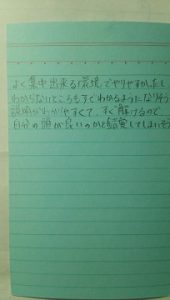 よく集中出来る環境でやりやすかったし
わからないところもすぐわかるようになり
説明がわかりやすくて、すぐ解けるので
自分の頭が良いのかと錯覚してしまいそう